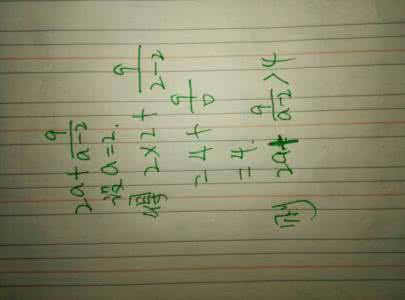 2a+\frac{9}{a-2}
设a=2.
得 2×2+\frac{9}{2-2}
=4+\frac{9}{0}
=4.
2a+\frac{9}{a-2}>4